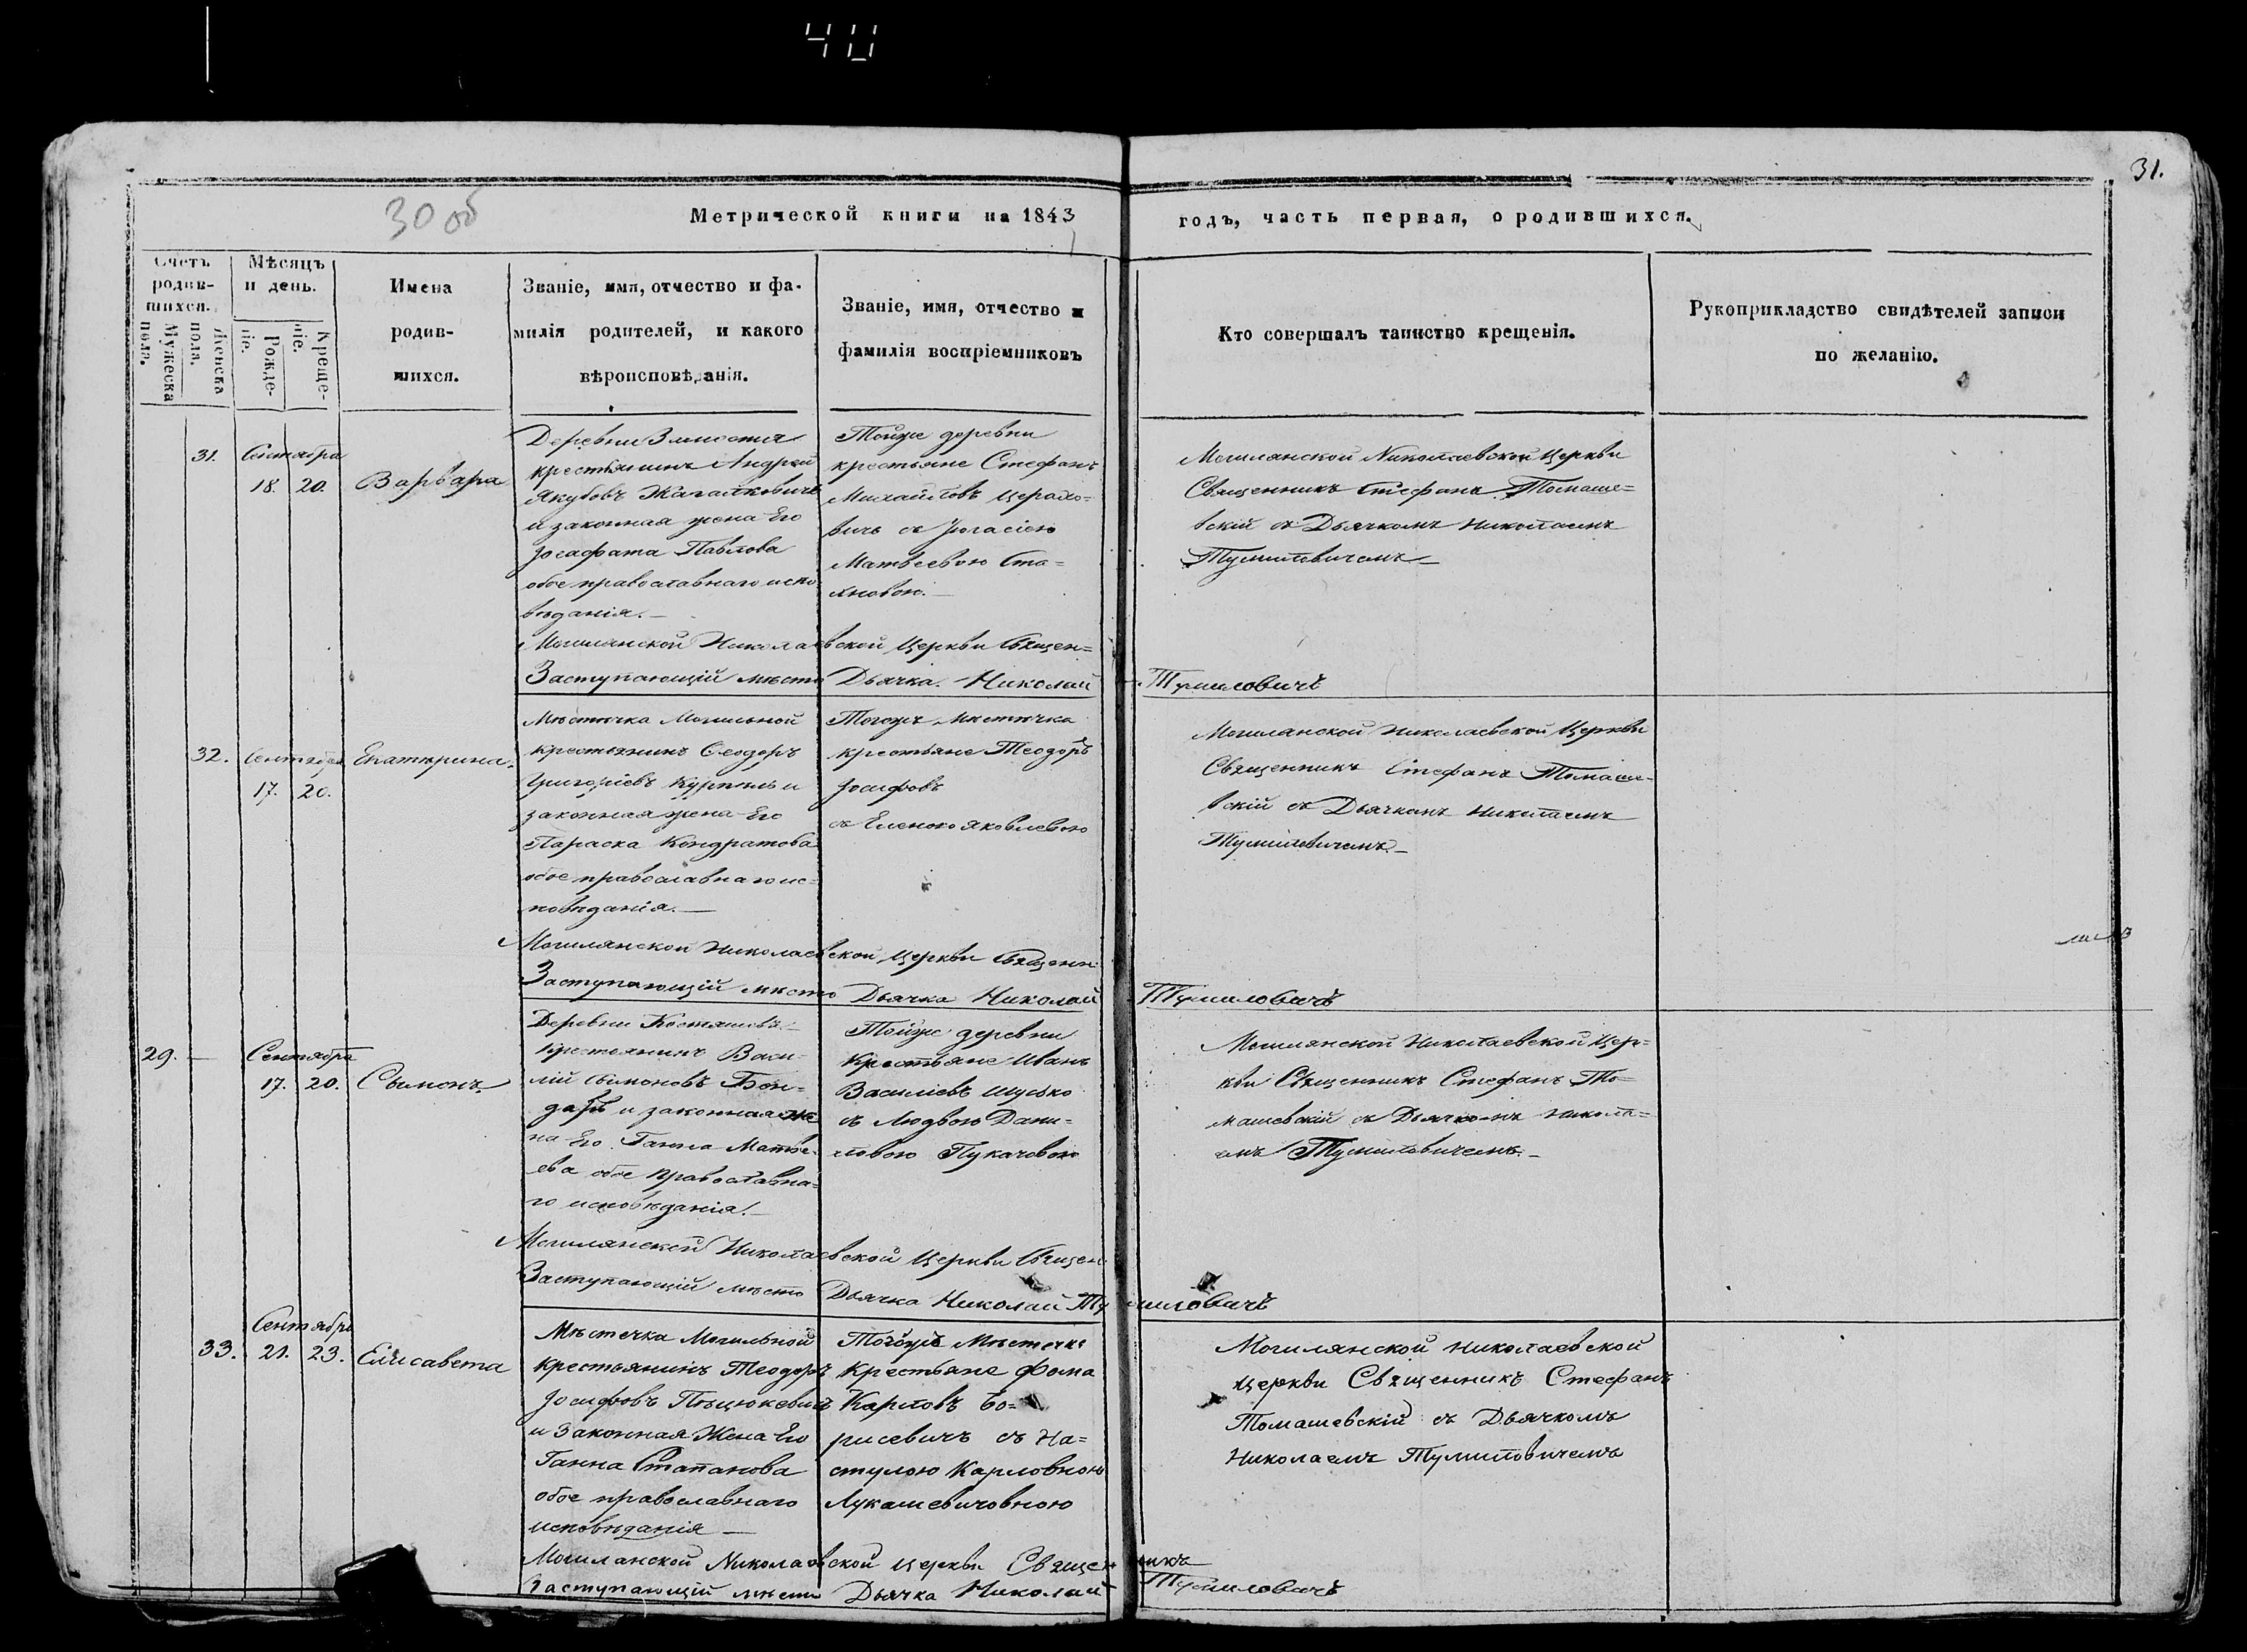 40
31.
30 об
Метрической книги на 1843
годъ, часть первая, о родившихся.
Счетъ родив-шихся.
Мужеска пола.
Женска пола.
Мѣсяцъ и день.
Рожде-ніе.
Креще-ніе.
Имена
родив-
шихся.
Званіе, имя, отчество и фа-
милія родителей, и какого
вѣроисповѣданія.
Званіе, имя, отчество и
фамилія воспріемниковъ
Кто совершалъ таинство крещенія.
Рукоприкладство свидѣтелей записи
по желанію.
31.
Сентября
18. 20.
Варвара
Деревни
крестьянинъ Андрей
Якубовъ
и законная жена Его
Іосафата Павлова
обое православнаго испо-
вѣданія.
Тойже деревни
крестьяне Стефанъ
Михайловъ
вичъ съ
Матвеевою Ста-
хновою.
Могилянской Николаевской Церкви
Священникъ Стефанъ Томаше-
вскій съ Дьячкомъ Николаемъ
Тумиловичемъ
Могилянской Николаевской Церкви Священ-
Заступающій мѣсто Дьячка Николай Тумиловичъ
32.
Сентября
17. 20.
Екатерина.
Мѣстечка Могильной
крестьянинъ Ѳеодоръ
Григоріевъ и
законная жена Его
Параска Кондратова
обое православнаго ис-
повѣданія.
Тогожъ Мѣстечка
крестьяне Теодоръ
Іосифовъ
съ Еленою Яковлевою
Могилянской Николаевской Церкви
Священникъ Стефанъ Томаше-
вскій съ Дьячкомъ Николаемъ
Тумиловичемъ
Могилянской Николаевской Церкви Священ
Заступающій мѣсто Дьячка Николай Тумиловичъ
29.
Сентября
17. 20.
Сѵмонъ
Деревни Костяшовъ
крестьянинъ Васи-
лій Сѵмоновъ Бон-
дарь и законная же
на Его Ганна Матве-
ева обое православна-
го исповѣданія.
Тойже деревни
Крестьяне Иванъ
Василіевъ Шусько
съ Людвою Дани-
ловою Пукачовою
Могилянской Николаевской Цер-
кви Священникъ Стефанъ То-
машевскій съ Дьячкомъ Никола-
емъ Тумиловичемъ.
Могилянской Николаевской Церкви Священ
Заступающій мѣсто Дьячка Николай Тумиловичъ
33.
Сентября
21. 23.
Елисавета
Мѣстечка Могильной
крестьянинъ Теодоръ
Іосифовъ Пецюкевичъ
и Законная Жена Его
Ганна Стапанова
обое православнаго
исповѣданія
Тогожъ Мѣстечка
Крестьяне Фома
Карповъ Бо-
рисевичъ съ На-
стулою Карловною
Лукашевичовною
Могилянской Николаевской
церкви Священникъ Стефанъ
Томашевскій съ Дьячкомъ
Николаемъ Тумиловичемъ
Могиланской Николаевской церкви Священникъ
Заступающій мѣсто Дьячка Николай Тумиловичъ